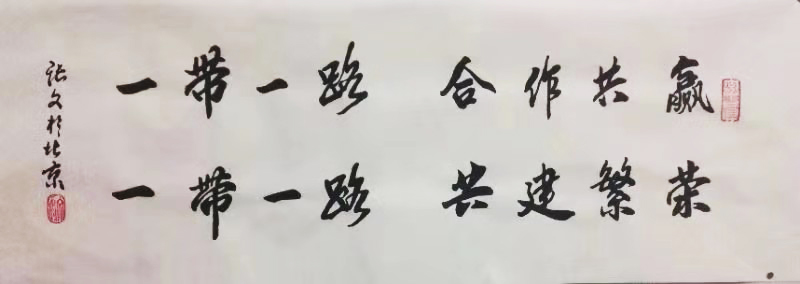 一带一路 合作共赢
一带一路 共建繁荣
张文於北京